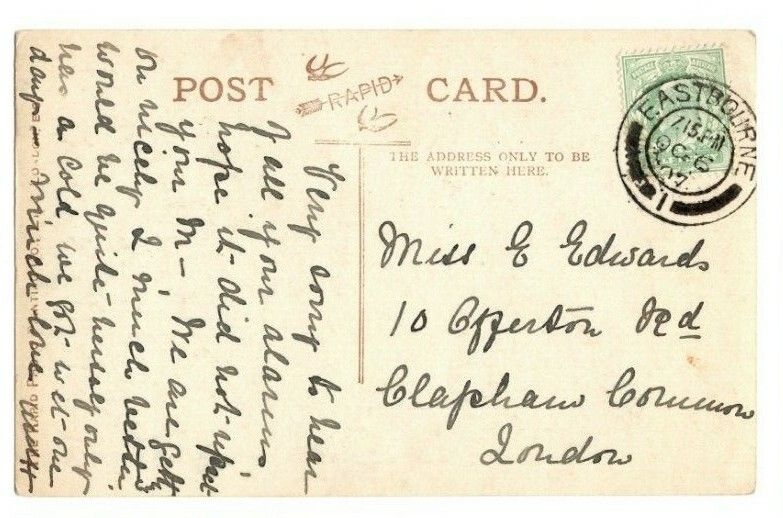 POST CARD.
RAPID
THE ADDRESS ONLY TO BE
WRITTEN HERE.
EASTBOURNE
7 15 PM
OC 6
07
1
Miss E Edwards
10 Offerton Rd
Clapham Common
London
Very sorry to hear
of all your alarms
hope it did not upset
your M— We are gettg
on nicely I much better
would be quite herself only
has a cold we got wet one
day. Much love